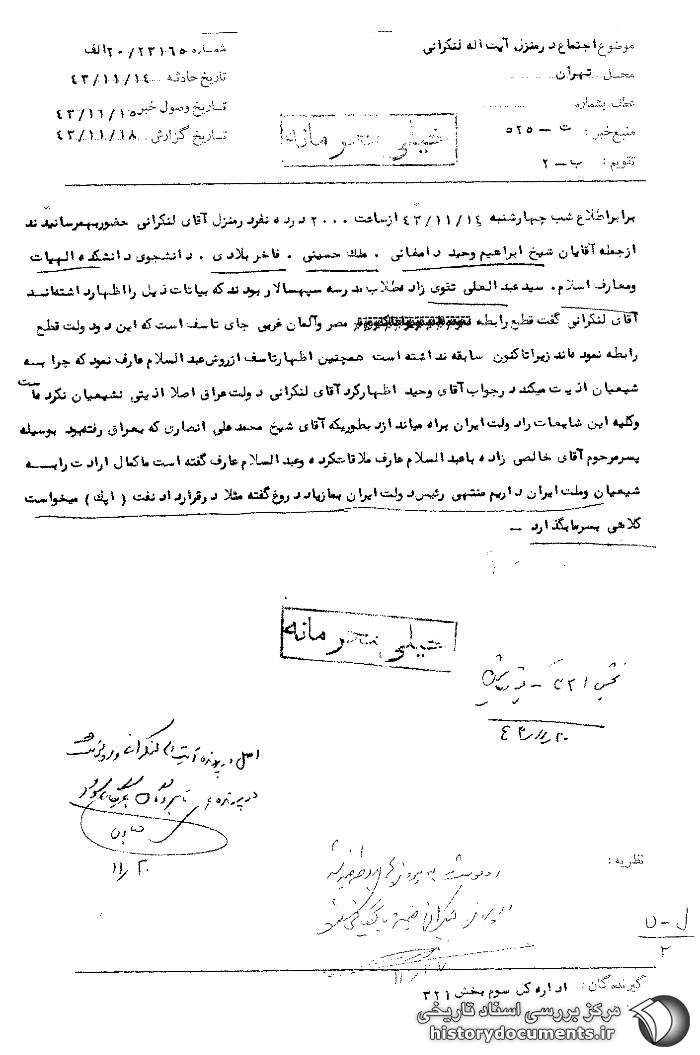 موضوع: اجتماع در منزل آیت اله لنکرانی
شماره ۲۰/۲۳۱۶۵الف
محل تهران
تاریخ حادثه ۴۳/۱۱/۱۴
عطف بشماره
تاریخ وصول خبر ۴۳/۱۱/۱۵
منبع خبر: ت – ۵۲۵
تاریخ گزارش ۴۳/۱۱/۱۸
تقویم: ب – ۲
خیلی محرمانه
برابر اطلاع شب چهارشنبه ۴۳/۱۱/۱۴ از ساعت ۲۰۰۰ در ده نفر در منزل آقای لنکرانی حضور بهم رسانیدند
از جمله آقایان شیخ ابراهیم وحید دامغانی . ملک حسینی . فاخر بلادی . دانشجوی دانشکده الهیات
و معارف اسلام . سید عبدالعلی تقوی زاد طلاب مدرسه سپهسالار بودند که بیانات ذیل را اظهار داشته‌اند
آقای لنکرانی گفت قطع رابطه مصر و آلمان غربی جای تاسف است که این دو دولت قطع
رابطه نموده‌اند زیرا تاکنون سابقه نداشته است همچنین اظهار تاسف از روش عبدالسلام عارف نمود که چرا به
شیعیان اذیت میکند در جواب آقای وحید اظهار کرد آقای لنکرانی دولت عراق اصلا اذیتی نشیعیان نکرده است
و کلیه این شایعات را دولت ایران براه میاندازد بطوریکه آقای شیخ محمد علی انصاری که بعراق رفته بود بوسیله
پسر مرحوم آقای خالصی زاده با عبدالسلام عارف ملاقات کرده و عبدالسلام عارف گفته است ما کمال ارادت را به
شیعیان و ملت ایران داریم منتهی رئیس دولت ایران بما زیاد دروغ گفته مثلا در قرارداد نفت ( اپک ) میخواست
کلاهی بسر ما بگذارد –
خیلی محرمانه
بخش ۳۲۱
۴۳/۱۱/۲۰
اصل در پرونده آیت اله لنکرانی
در پرونده
۱۱/۲۰
نظریه:
ل – ن
۲
گیرندگان: اداره کل سوم بخش ۳۲۱
مرکز بررسی اسناد تاریخی
historydocuments.ir